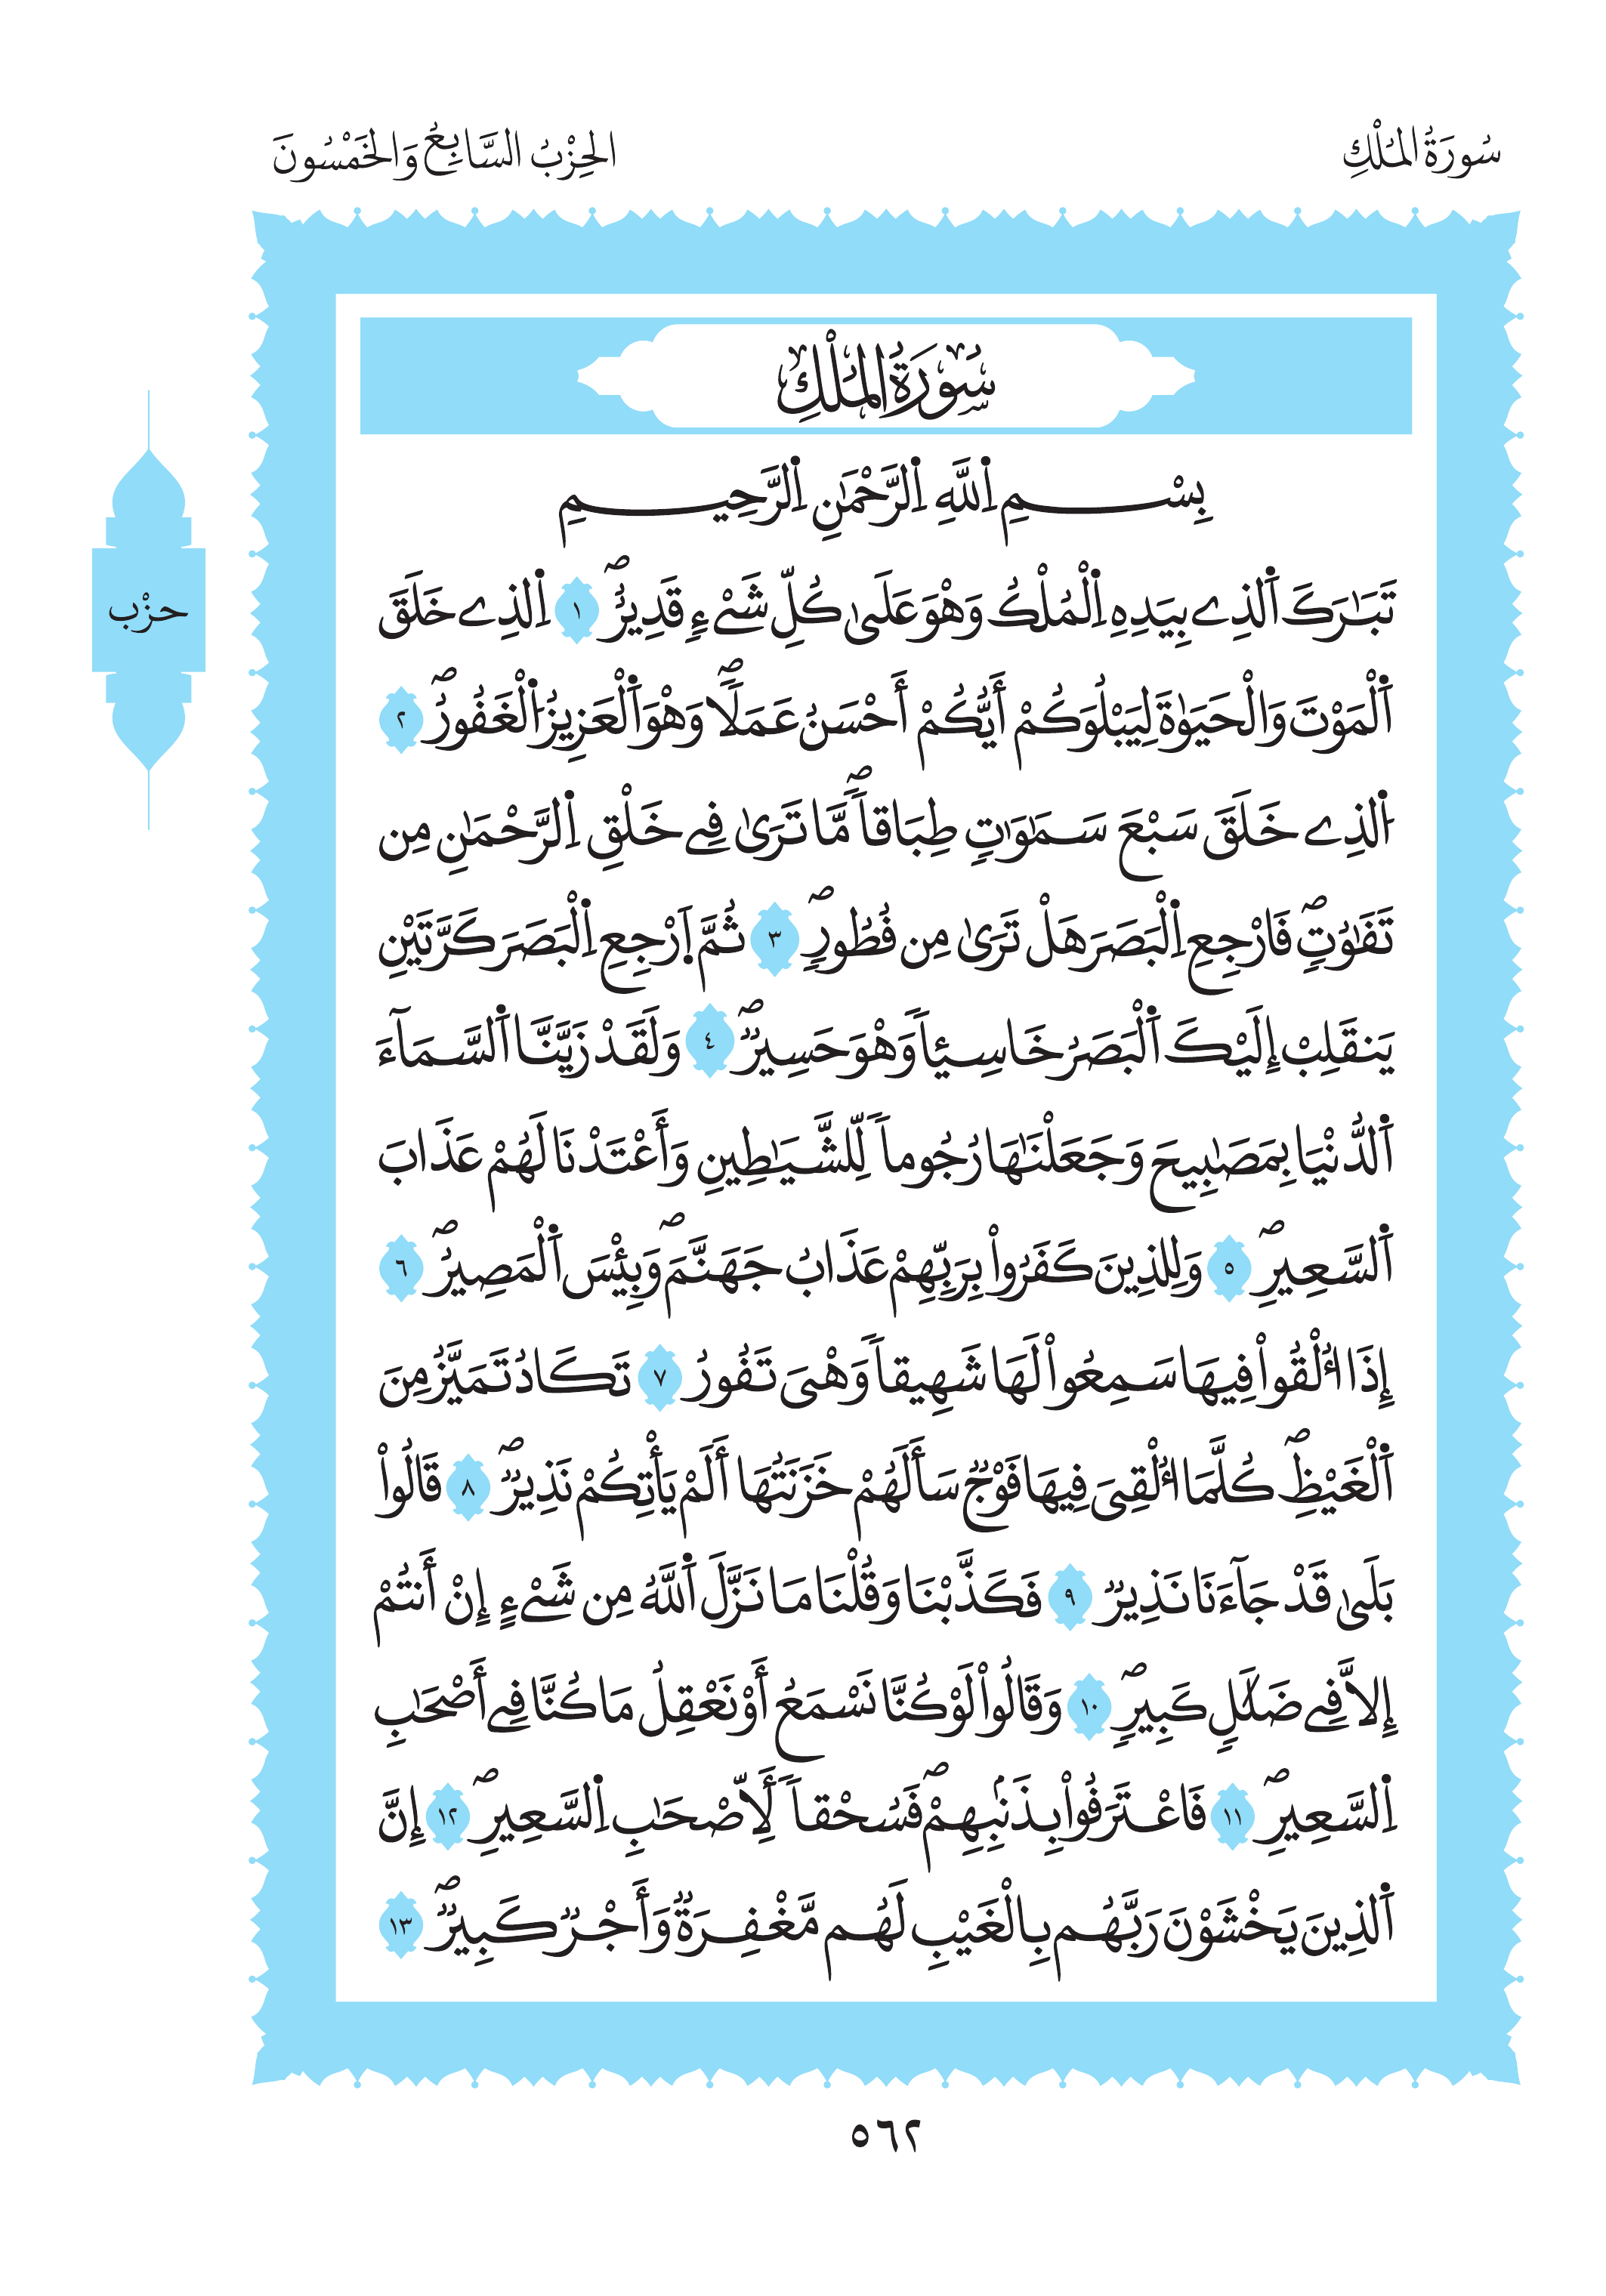 سُورَةُ المُلْكِ
الحِزْبُ السَّابِعُ وَالخَمْسُونَ
سُورَةُ المُلْكِ
بِسْمِ اِ۬للَّهِ اِ۬لرَّحْمَٰنِ اِ۬لرَّحِيمِ
تَبَٰرَكَ اَ۬لذِے بِيَدِهِ اِ۬لْمُلْكُ وَهْوَ عَلَىٰ كُلِّ شَےْءٖ قَدِيرٌۖ ١ اِ۬لذِے خَلَقَ
اَ۬لْمَوْتَ وَالْحَيَوٰةَ لِيَبْلُوَكُمْ أَيُّكُمْ أَحْسَنُ عَمَلاٗۖ وَهْوَ اَ۬لْعَزِيزُ اُ۬لْغَفُورُۖ ٢
اُ۬لذِے خَلَقَ سَبْعَ سَمَٰوَٰتٖ طِبَاقاٗۖ مَّا تَرَىٰ فِے خَلْقِ اِ۬لرَّحْمَٰنِ مِن
تَفَٰوُتٖۖ فَارْجِعِ اِ۬لْبَصَرَ هَلْ تَرَىٰ مِن فُطُورٖۖ ٣ ثُمَّ اَ۪رْجِعِ اِ۬لْبَصَرَ كَرَّتَيْنِ
يَنقَلِبْ إِلَيْكَ اَ۬لْبَصَرُ خَاسِئاٗ وَهْوَ حَسِيرٞۖ ٤ وَلَقَدْ زَيَّنَّا اَ۬لسَّمَآءَ
اَ۬لدُّنْيَا بِمَصَٰبِيحَ وَجَعَلْنَٰهَا رُجُوماٗ لِّلشَّيَٰطِينِ وَأَعْتَدْنَا لَهُمْ عَذَابَ
اَ۬لسَّعِيرِۖ ٥ وَلِلذِينَ كَفَرُواْ بِرَبِّهِمْ عَذَابُ جَهَنَّمَۖ وَبِئْسَ اَ۬لْمَصِيرُۖ ٦
إِذَا أُلْقُواْ فِيهَا سَمِعُواْ لَهَا شَهِيقاٗ وَهْىَ تَفُورُ ٧ تَكَادُ تَمَيَّزُ مِنَ
اَ۬لْغَيْظِۖ كُلَّمَا أُلْقِىَ فِيهَا فَوْجٞ سَأَلَهُمْ خَزَنَتُهَا أَلَمْ يَأْتِكُمْ نَذِيرٞۖ ٨ قَالُواْ
بَلَىٰ قَدْ جَآءَنَا نَذِيرٞ ٩ فَكَذَّبْنَا وَقُلْنَا مَا نَزَّلَ اَ۬للَّهُ مِن شَےْءٍ إِنْ أَنتُمْ
إِلاَّ فِے ضَلَٰلٖ كَبِيرٖۖ ١٠ وَقَالُواْ لَوْ كُنَّا نَسْمَعُ أَوْ نَعْقِلُ مَا كُنَّا فِے أَصْحَٰبِ
اِ۬لسَّعِيرِۖ ١١ فَاعْتَرَفُواْ بِذَنۢبِهِمْۖ فَسُحْقاٗ لِّأَصْحَٰبِ اِ۬لسَّعِيرِۖ ١٢ إِنَّ
اَ۬لذِينَ يَخْشَوْنَ رَبَّهُم بِالْغَيْبِ لَهُم مَّغْفِرَةٞ وَأَجْرٞ كَبِيرٞۖ ١٣
حِزْب
٥٦٢